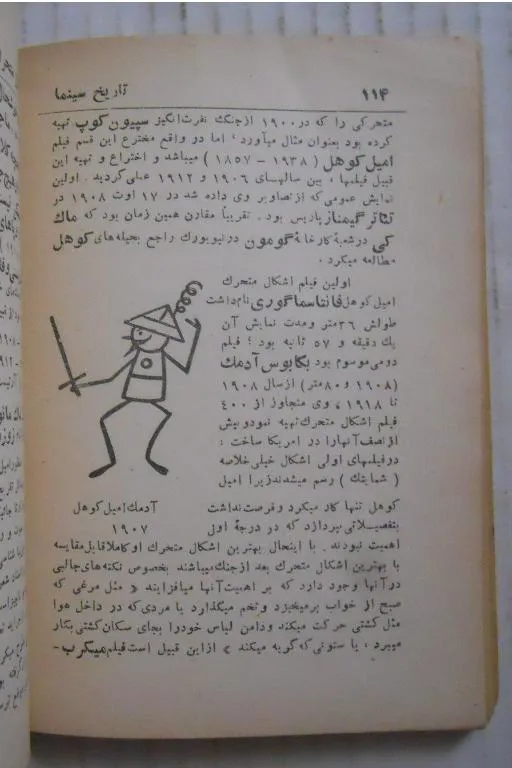 ۱۱۴
تاریخ سینما
متحرکی را که در ۱۹۰۰ از جنگ نفرت‌انگیز سپیون کوپ تهیه
کرده بود بعنوان مثال میآورد ، اما در واقع مخترع این قسم فیلم
امیل کوهل ( ۱۹۳۸ - ۱۸۵۷ ) میباشد و اختراع و تهیه این
قبیل فیلمها ، بین سالهای ۱۹۰۶ و ۱۹۱۲ عملی گردید . اولین
نمایش عمومی که از تصاویر وی داده شد در ۱۷ اوت ۱۹۰۸ در
تئاتر گیمناز پاریس بود . تقریباً مقارن همین زمان بود که ماك
کی در شعبهٔ کارخانهٔ گومون در نیویورك راجع بحیله‌های کوهل
مطالعه میکرد .
اولین فیلم اشکال متحرك
امیل کوهل فانتاسماگوری نام داشت
طولش ۳۶ متر و مدت نمایش آن
یك دقیقه و ۵۷ ثانیه بود ؛ فیلم
دومی موسوم بود بکابوس آدمك
(۱۹۰۸ و ۸۰ متر) از سال ۱۹۰۸
تا ۱۹۱۸ ، وی متجاوز از ۴۰۰
فیلم اشکال متحرك تهیه نمود و بیش
از نصف آنها را در امریکا ساخت :
در فیلمهای اولی اشکال خیلی خلاصه
( شماتیك ) رسم میشدند زیرا امیل
کوهل تنها کار میکرد و فرصت نداشت
بتفصیلاتی بپردازد که در درجهٔ اول
آدمك امیل کوهل
۱۹۰۷
اهمیت نبودند . با اینحال بهترین اشکال متحرك او کاملا قابل مقایسه
با بهترین اشکال متحرك بعد از جنك میباشند بخصوص نکته‌های جالبی
در آنها وجود دارد که بر اهمیت آنها میافزایند « مثل مرغی که
صبح از خواب برمیخیزد و تخم میگذارد یا مردی که در داخل هوا
مثل کشتی حرکت میکند و دامن لباس خود را بجای سکان کشتی بکار
میبرد ، یا ستونی که گریه میکند » از این قبیل است فیلم میکرب-